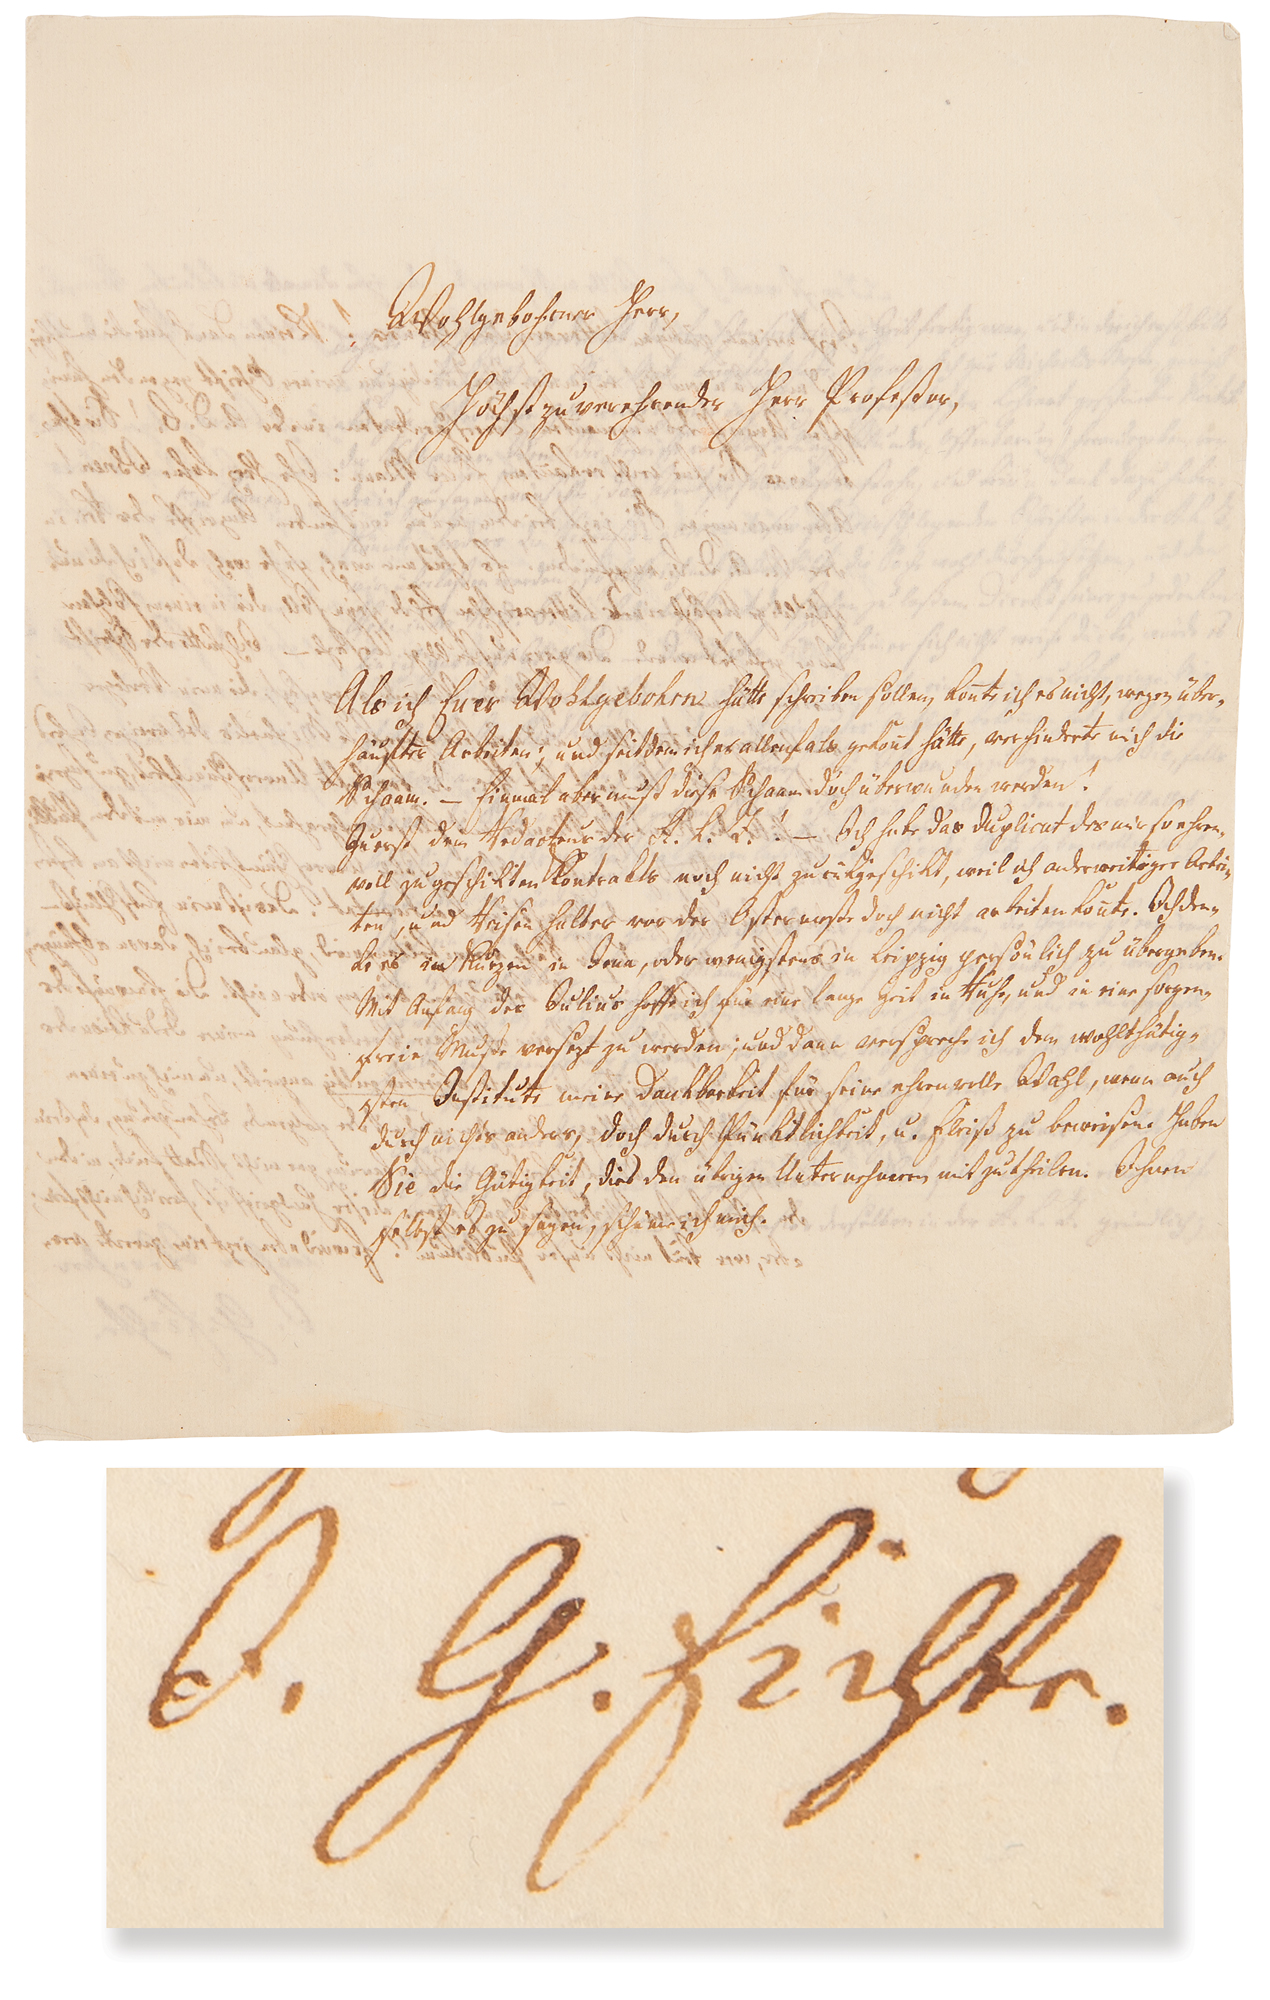 Wohlgebohrner Herr,
Höchstzuverehrender Herr Profeßor,
Als ich Euer Wohlgebohrn hätte schreiben sollen, konte ich es nicht, wegen über-
häufter Arbeiten; und seitdem ich es allenfals gekont hätte, verhinderte mich die
Schaam. — Einmal aber muß diese Schaam doch überwunden werden!
Zuerst dem Redacteur der A. L. Z.! — Ich habe das Duplicat des mir so ehren-
voll zugeschikten Kontrakts noch nicht zurükgeschikt, weil ich anderweitiger Arbei-
ten, und Reisen halber vor der Ostermeße doch nicht arbeiten konte. Ich den-
ke es im Kurzen in Jena, oder wenigstens in Leipzig persönlich zu übergeben.
Mit Anfang des Julius hoffe ich für eine lange Zeit in Ruhe, und in eine sorgen-
freie Muße versezt zu werden; und dann verspreche ich dem wohlthätig-
sten Institute meine Dankbarkeit für seine ehrenvolle Wahl, wenn auch
durch nichts anders, doch durch Pünktlichkeit, u. Fleiß zu beweisen. Haben
Sie die Gütigkeit, dies den übrigen Unternehmern mitzutheilen. Ihnen
selbst es zu sagen, schäme ich mich.
J. G. Fichte.